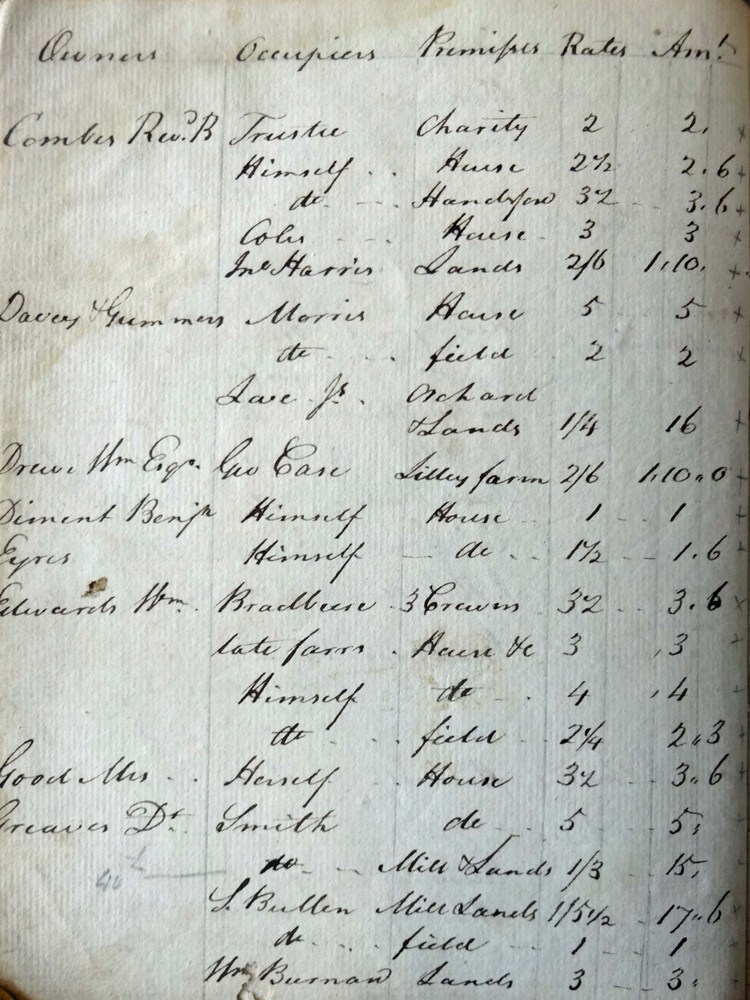 Owners Occupiers Premises Rates Amt.
Combes Revd. R Trustee Charity 2 2.
Himself House 2½ 2.6
do Handsford 3½ 3.6
Coles House 3 3
Jno Harris Lands 2/6 1.10.
Davey & Gummers Morris House 5 5
do field 2 2
Love Js. Orchard
& Lands 1/4 16
Drewe Wm Esqr. Geo Case Lilley farm 2/6 1.10.0
Diment Benjn Himself House 1 1
Eyres Himself do 1½ 1.6
Edwards Wm. 3 Crowns 3½ 3.6
late farrs House &c 3 3
Himself do 4 4
do field 2¼ 2.3
Good Mrs Herself House 3½ 3.6
Greaves Dr. Smith do 5 5
do Mill & Lands 1/3 15
S. Bullen Mill Lands 1/5½ 17.6
do field 1 1
Wm Lands 3 3